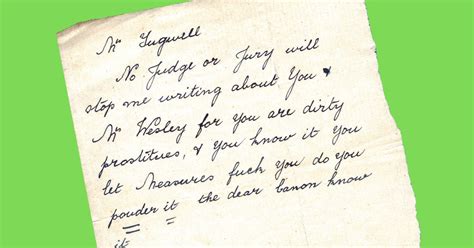 Mrs Tugwell
No Judge or Jury will
stop me writing about You &
Mrs Wesley for You are dirty
prostitues, & You know it You
let Measures fuck You do You
pouder it the dear banon know
it